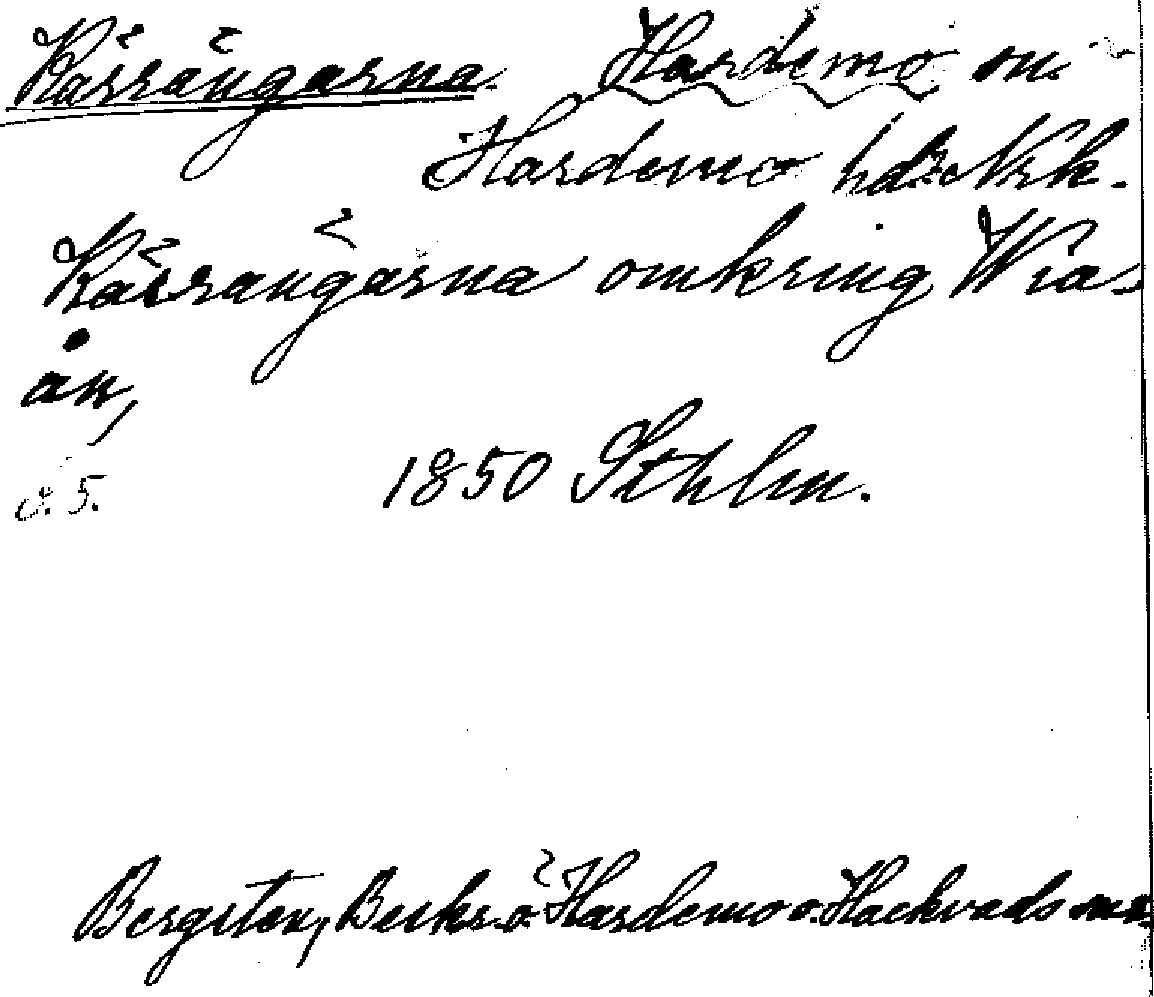 Kärrängarna. Hardemo sn.
Hardemo hd. Nrk.
Kärrängarna omkring Wia-
ån,
s. 5. 1850 Sthlm.
Bergsten, Beskr. ö. Hardemo o. Hackvads